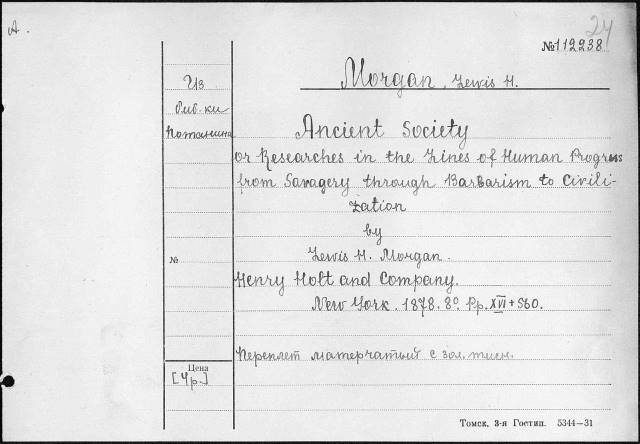 A.
24
№112238
Из
биб-ки
Потанина
Morgan, Lewis H.
Ancient Society
or Researches in the Lines of Human Progress
from Savagery through Barbarism to Civili-
zation
by
Lewis H. Morgan.
№
Henry Holt and Company.
New York. 1878. 8º. Pp. XVI + 560.
Переплет матерчатый с зол. тисн.
Цена
[4р.]
Томск, 3-я Гостип. 5344—31